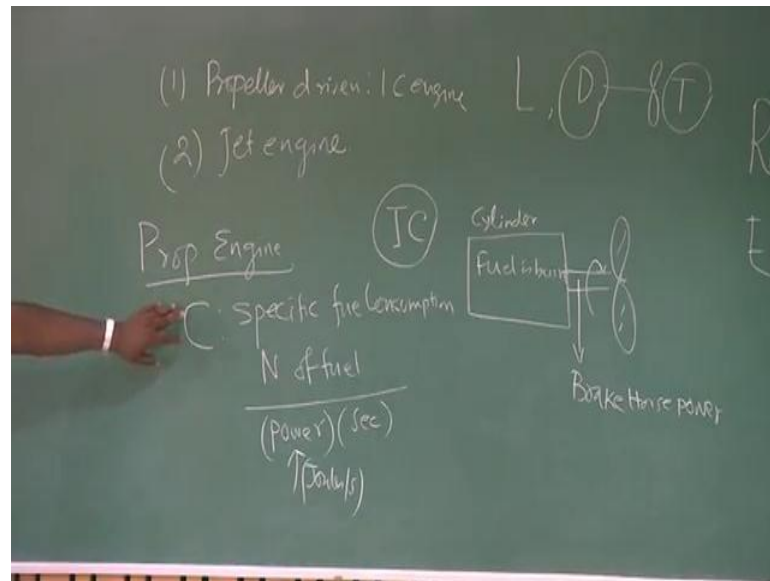 (1) Propeller driven: IC engine
L, D T
(2) Jet engine
Prop Engine
IC
Cylinder
Fuel is burn
C: Specific fuel Consumption
N of fuel
(Power) (sec)
(Joules/s)
Brake Horse power
R
E